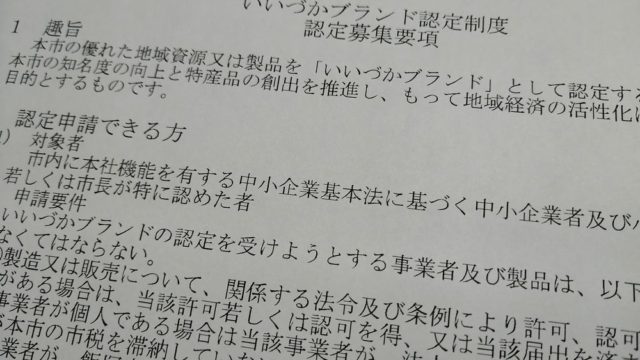 いいづかブランド認定制度
認定募集要項
1 趣旨
本市の優れた地域資源又は製品を「いいづかブランド」として認定する
本市の知名度の向上と特産品の創出を推進し、もって地域経済の活性化に
目的とするものです。
認定申請できる方
対象者
市内に本社機能を有する中小企業基本法に基づく中小企業者及び
若しくは市長が特に認めた者
申請要件
いいづかブランドの認定を受けようとする事業者及び製品は、以下
なくてはならない。
製造又は販売について、関係する法令及び条例により許可、認可
がある場合は、当該許可若しくは認可を得、又は当該届出を済
事業者が個人である場合は当該事業者が、法
が本市の市税を滞納していな
業者が、飯